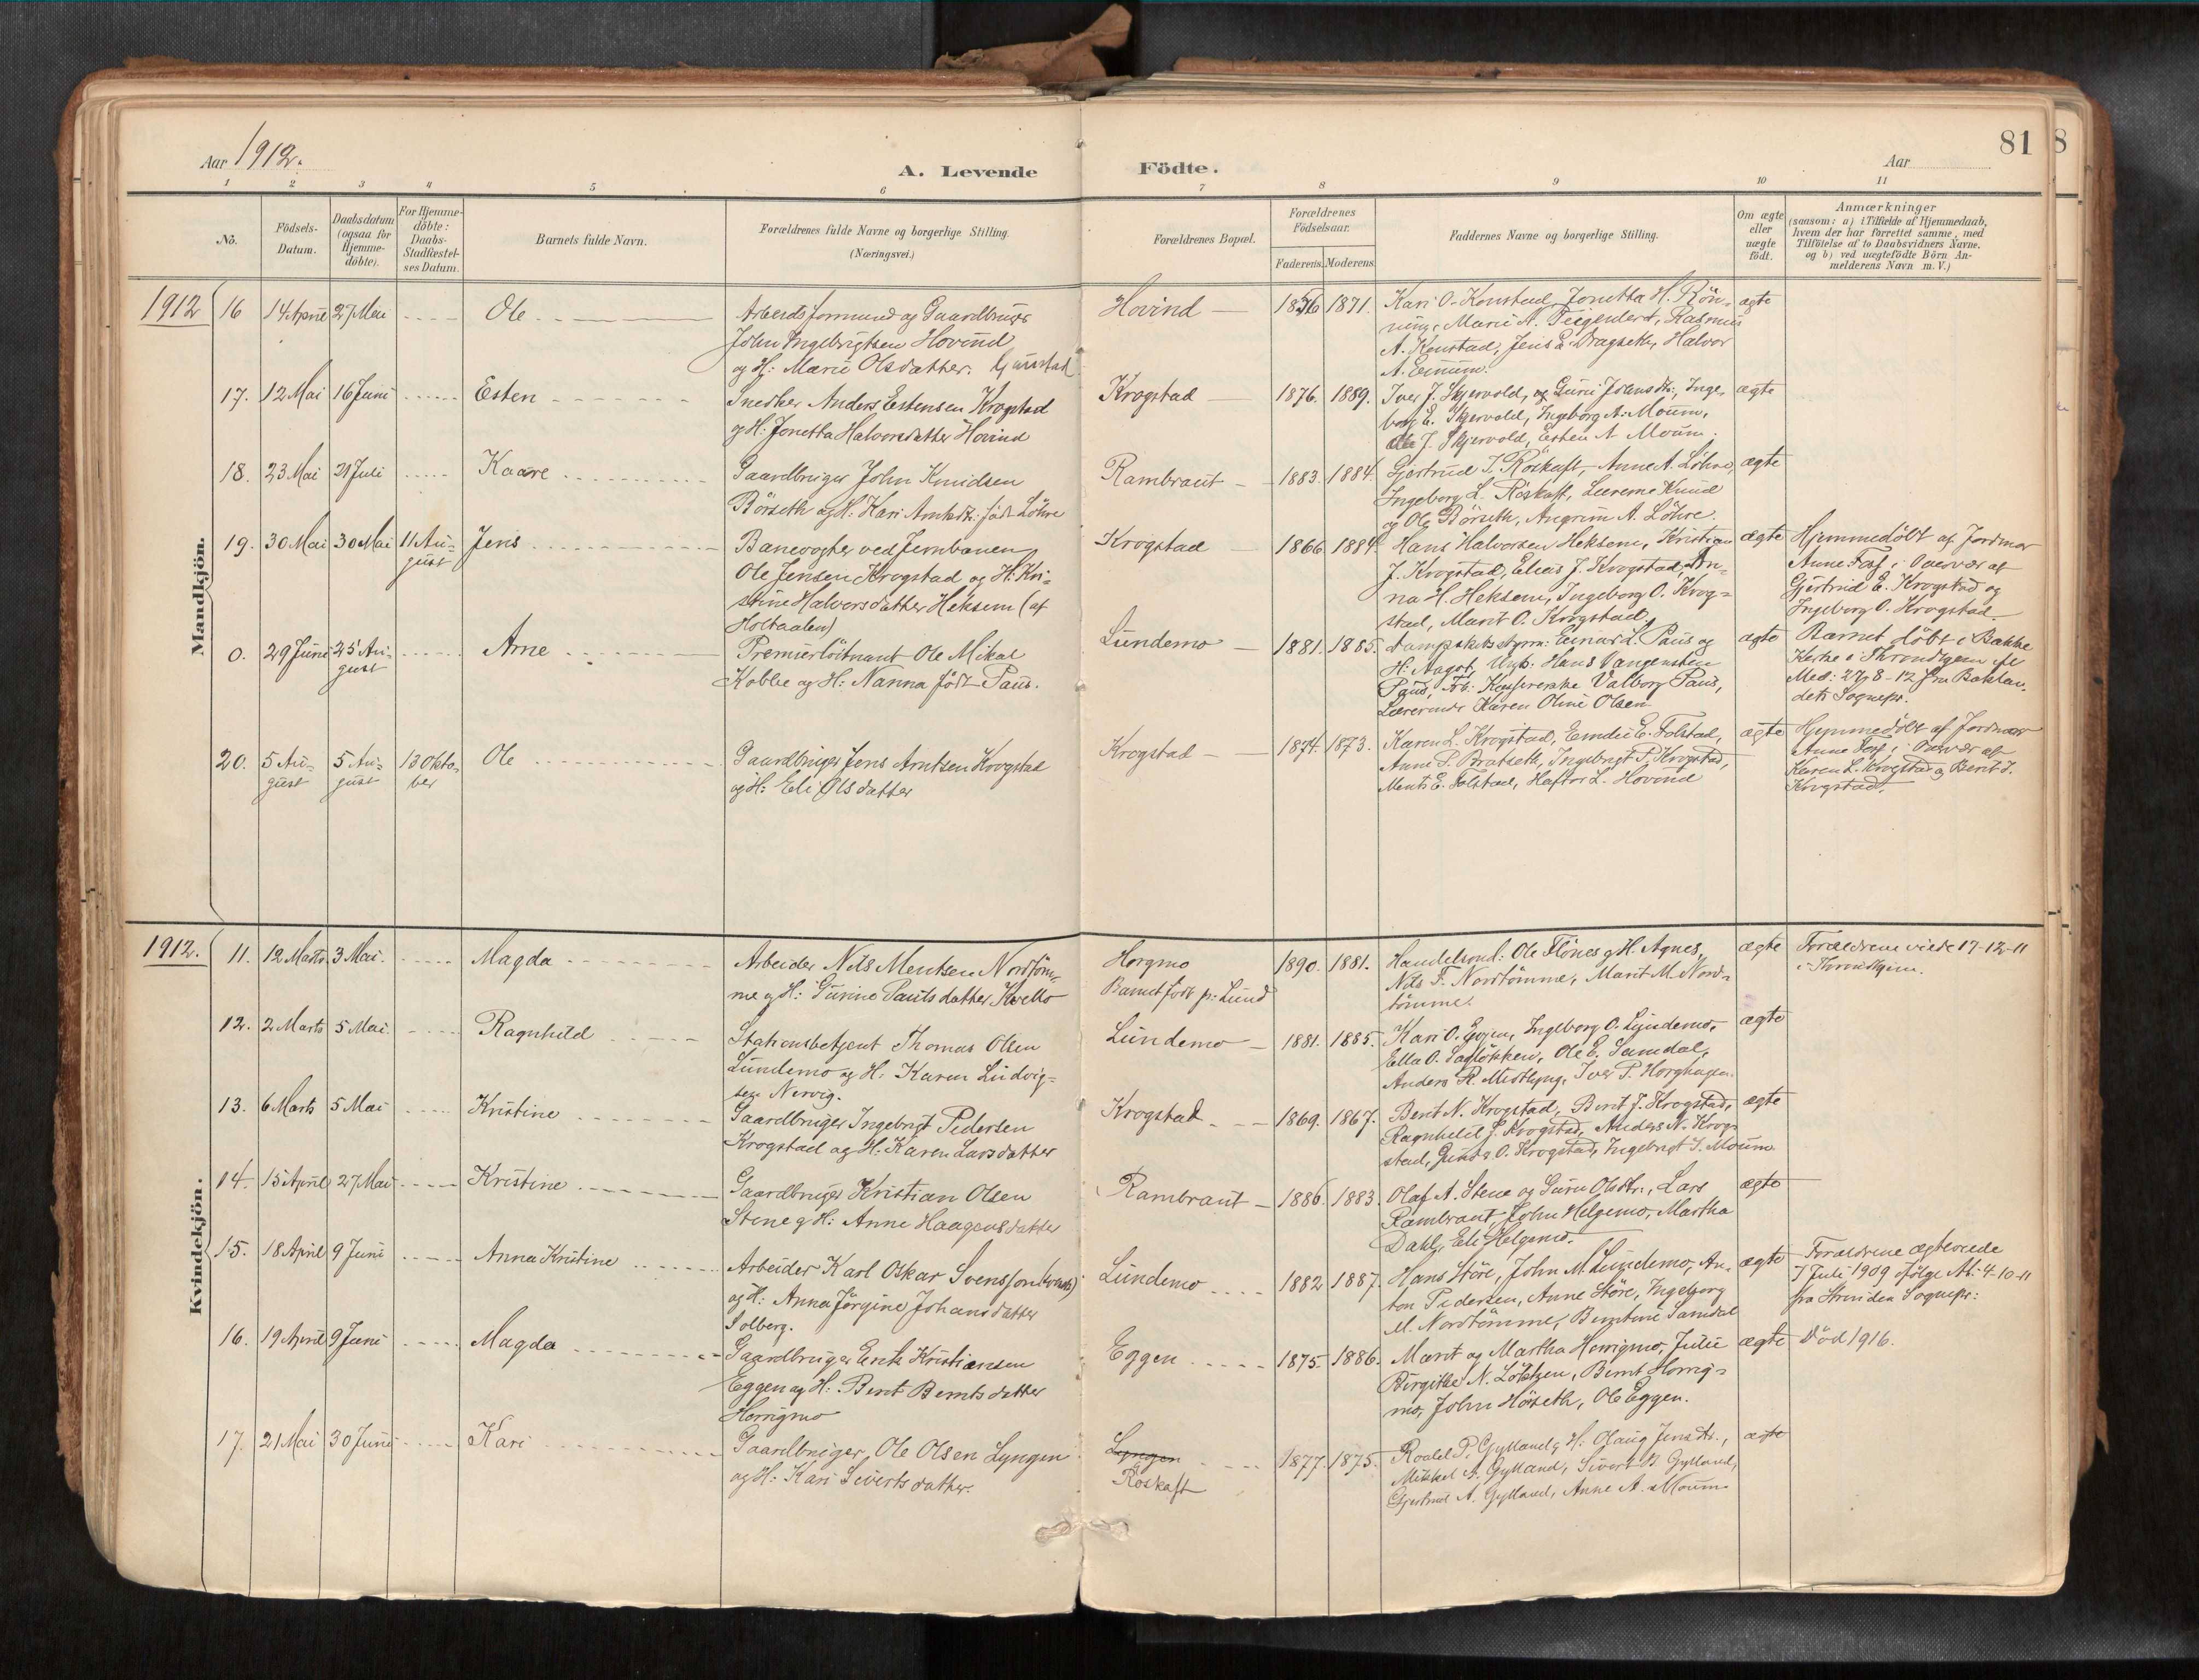 81
8
Aar 1912.
A. Levende
Födte.
Aar
1 2 3 4 5 6 7 8 9 10 11
No.
Födsels-
Datum.
Daabsdatum
(ogsaa for
Hjemme-
döbte).
For Hjemme-
döbte:
Daabs-
Stadfæstel-
ses Datum.
Barnets fulde Navn.
Forældrenes fulde Navne og borgerlige Stilling.
(Næringsvei.)
Forældrenes Bopæl.
Forældrenes
Födselsaar.
Faderens. Moderens.
Faddernes Navne og borgerlige Stilling.
Om ægte
eller
uægte
födt.
Anmærkninger
(saasom: a) i Tilfælde af Hjemmedaab,
hvem der har forrettet samme, med
Tilföielse af to Daabsvidners Navne.
og b) ved uægtefödte Börn An-
melderens Navn m. V.)
Mandkjön.
1912 16 14 April 27 Mai Ole
Arbeidsformand og Gaardbruger
John Ingebrigtsen Hovind
og H: Marit Olsdatter.
Hovind 1871.
Kari O. Konstad, Jonetta H. Rön-
ning, Marit A. Rasmus
A. Konstad, Jens E. Dragseth, Halvor
A.
ægte
17. 12 Mai 16 Juni Esten
Snedker Anders Estensen Krogstad
og H: Jonetta Halvorsdatter Hovind
Krogstad 1876. 1889.
Iver J. Skjervold, og Guri Johnsdtr:, Inge-
borg E. Skjervold, Ingeborg A. Moum,
Ole J. Skjervold, Esten A Moum.
ægte
18. 23 Mai 21 Juli Kaare
Gaardbruger John Knudsen
Börseth og H: Kari Arntsdtr: födt Löhre
Rambraut 1883. 1884.
Gjertrud I. Röskaft, Anne A. Löhre,
Ingeborg L. Röskaft, Lærerne Knud
og Ole Börseth, Angrim A. Löhre.
ægte
19. 30 Mai 30 Mai 11 Au-
gust
Jens
Banevogter ved Jernbanen
Ole Jensen Krogstad og H: Kri-
stine Halvorsdatter Heksem (af
Holtaalen)
Krogstad 1866 1884.
Hans Halvorsen Heksem, Kristian
J. Krogstad, Elias J. Krogstad, An-
na H. Heksem, Ingeborg O. Krog-
stad, Marit O. Krogstad.
ægte
Hjemmedöbt af Jordmor
Anne Fosf i Overvær af
Gjertrud E. Krogstad og
Ingeborg O. Krogstad.
0. 29 Juni 25 Au-
gust
Arne
Premierlöitnant Ole Mikal
Kobbe og H: Nanna födt Paus.
Lundemo 1881. 1885.
Dampskibsstyrm: Einar L. Paus og
H: Magot, Ungk: Hans Vangensten
Paus, Frk: Kassererske Valborg Paus,
Lærerinde Karen Oline Olsen
ægte
Barnet döbt i Bakke
Kirke i Throndhjem
Med: 27/8-12 fra Baklan-
dets Sognepr.
20. 5 Au-
gust
5 Au-
gust
13 Okto-
ber
Ole
Gaardbruger Jens Arntsen Krogstad
og H: Eli Olsdatter
Krogstad 1874. 1873.
Karen L. Krogstad, E. Folstad,
Anne P. Bratseth, Ingebrigt P. Krogstad,
Ments E. Folstad, Haftor L. Hovind
ægte
Hjemmedöbt af Jordmor
Anne Fosf i Overvær af
Karen L. Krogstad og Berit J.
Krogstad.
Kvindekjön.
1912. 11. 12 Marts 3 Mai. Magda
Arbeider Nils Mentsen Nordtöm-
me og H: Gurine Paulsdatter Kvello
Horgmo
Barnet födt p: Lund
1890. 1881.
Handelsmd: Ole Flönes og H. Agnes,
Nils F. Nordtömme, Marit M. Nord-
tömme.
ægte
Forældrene viede 17-12-11
i Throndhjem.
12. 2 Marts 5 Mai. Ragnhild
Stationsbetjent Thomas Olsen
Lundemo og H: Karen Ludvig-
sen Nervig.
Lundemo 1881. 1885.
Kari O. Eggen, Ingeborg O. Lundemo,
Ella O. Ole E. Samdal,
Anders R. Midtlyng, Iver P. Horghagen.
ægte
13. 6 Marts 5 Mai Kristine
Gaardbruger Ingebrigt Pedersen
Krogstad og H: Karen Larsdatter
Krogstad 1869. 1867.
Berit N. Krogstad, Berit J. Krogstad,
Ragnhild J. Krogstad, Anders N. Krog-
stad, O. Krogstad, Ingebrigt S. Moum
ægte
14. 15 April 27 Mai Kristine
Gaardbruger Kristian Olsen
Stene og H: Anne Haagensdatter
Rambraut 1886. 1883.
Olaf A. Stene og Guru Olsdtr:, Lars
Rambraut, John Helgemo, Martha
Dahl, Eli Helgemo.
ægte
15. 18 April 9 Juni Anna Kristine
Arbeider Karl Oskar Svensson
og H: Anna Jörgine Johansdatter
Solberg.
Lundemo 1882 1887.
Hans Störe, John M. Lundemo, An-
ton Pedersen, Anne Störe, Ingeborg
M. Nordtömme, Berntine Samdal
ægte
Forældrene ægteviede
7 Juli 1909 ifölge At: 4-10-11
fra Strinden Sognepr:
16. 19 April 9 Juni Magda
Gaardbruger Erik Kristiansen
Eggen og H: Berit Berntsdatter
Horrigmo
Eggen 1875. 1886.
Marit og Martha Horrigmo, Julie
Birgitte N. Bernt Horrig-
mo, John Hörseth, Ole Eggen.
ægte
Död 1916.
17. 21 Mai 30 Juni Kari
Gaardbruger Ole Olsen Lyngen
og H: Kari Sivertsdatter.
Lyngen
Röskaft
1877. 1875.
Roald P. Gylland og H: Olaug Jensdtr.,
Mikkel A. Gylland, Sivert B Gylland,
Gjertrud A. Gylland, Anne A. Moum.
ægte